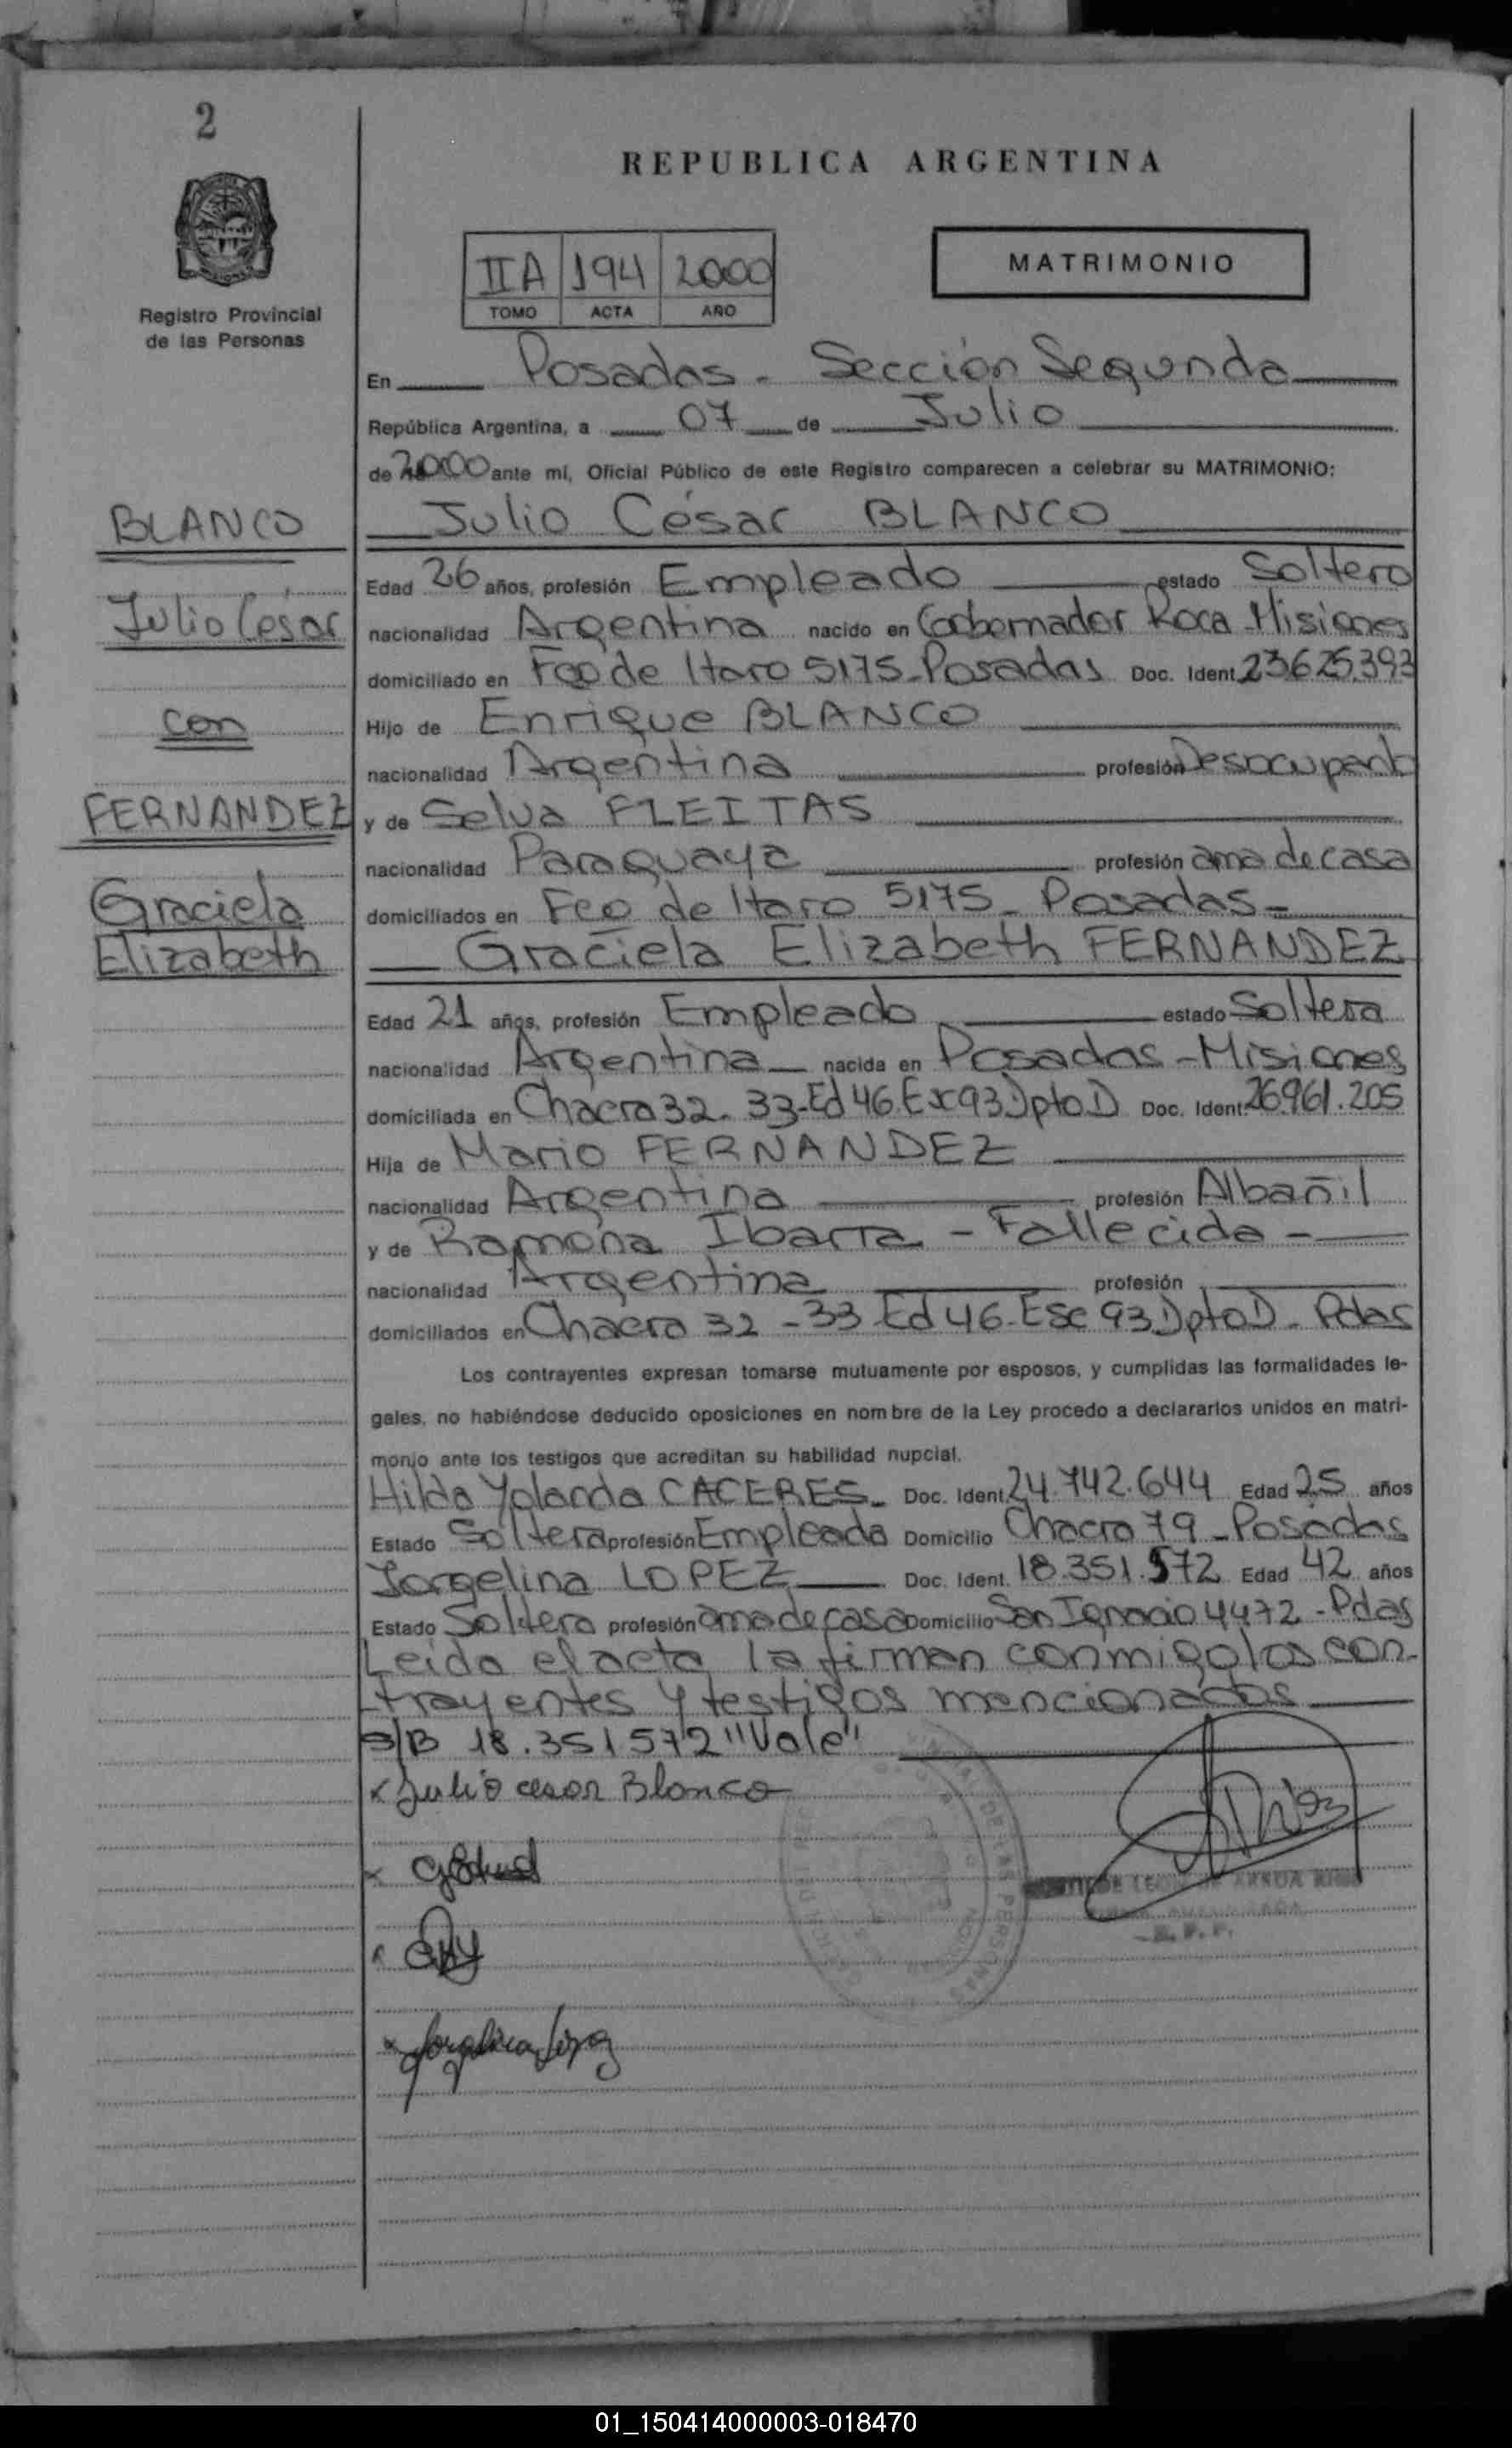 2
REPUBLICA ARGENTINA
IIA 194 2000
TOMO ACTA AÑO
MATRIMONIO
Registro Provincial
de las Personas
En Posadas - Sección Segunda
República Argentina, a 07 de Julio
de 2000 ante mí, Oficial Público de este Registro comparecen a celebrar su MATRIMONIO:
BLANCO
Julio César
con
FERNANDEZ
Graciela
Elizabeth
Julio César BLANCO
Edad 26 años, profesión Empleado estado Soltero
nacionalidad Argentina nacido en Gobernador Roca - Misiones
domiciliado en Fco de Haro 5175 - Posadas Doc. Ident. 23.625.393
Hijo de Enrique BLANCO
nacionalidad Argentina profesión Desocupado
y de Selva FLEITAS
nacionalidad Paraguaya profesión ama de casa
domiciliados en Fco de Haro 5175 - Posadas -
Graciela Elizabeth FERNANDEZ
Edad 21 años, profesión Empleado estado Soltera
nacionalidad Argentina nacida en Posadas - Misiones
domiciliada en Chacra 32 - 33 - Ed 46 Esc 93 Dpto D Doc. Ident. 26.961.205
Hija de Mario FERNANDEZ
nacionalidad Argentina profesión Albañil
y de Ramona Ibarra - Fallecida -
nacionalidad Argentina profesión
domiciliados en Chacra 32 - 33 - Ed 46 - Esc 93 Dpto D - Pdas
Los contrayentes expresan tomarse mutuamente por esposos, y cumplidas las formalidades le-
gales, no habiéndose deducido oposiciones en nombre de la Ley procedo a declararlos unidos en matri-
monio ante los testigos que acreditan su habilidad nupcial.
Hilda Yolanda CACERES - Doc. Ident. 24.742.644 Edad 25 años
Estado Soltera profesión Empleada Domicilio Chacra 79 - Posadas
Jorgelina LOPEZ Doc. Ident. 18.351.572 Edad 42 años
Estado Soltera profesión ama de casa Domicilio San Ignacio 4472 - Pdas
Leida el acta la firman conmigo los con-
trayentes y testigos mencionados
S/B 18.351572 "Vale"
x Julio cesar Blanco
x Jorgelina Lopez
01_150414000003-018470